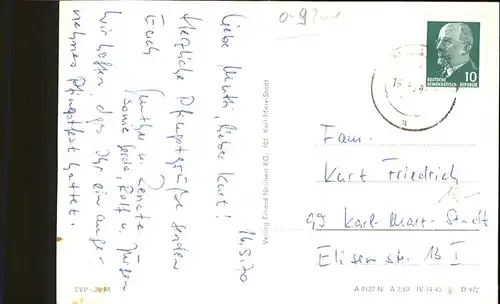 16.5.70
Liebe Mutti, lieber Kurt!
Herzliche Pfingstgrüße senden
Euch
Günther u. Renate
sowie Gerda, Rolf u. Jürgen
Wir hoffen, das Ihr ein ange-
nehmes Pfingstfest hattet.
EVP -,20 M
Verlag Erhard Neubert KG, 901 Karl-Marx-Stadt
DEUTSCHE
DEMOKRATISCHE REPUBLIK
10
Fam.
Kurt Friedrich
99 Karl-Marx-Stadt
Elisenstr. 13 I
A 9127 N A 3/69 IV-14-45 D 972